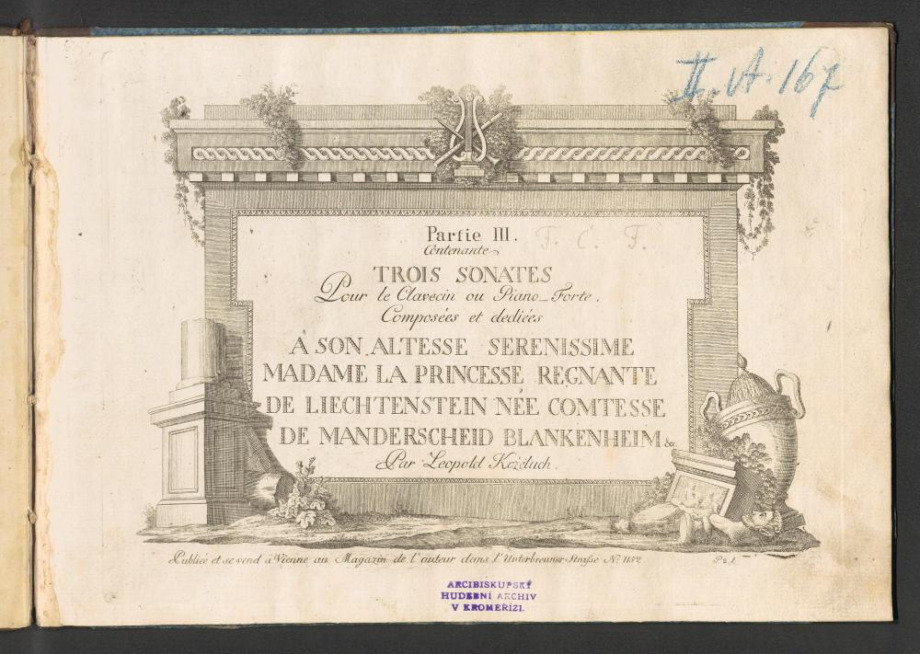 II. A. 167
Partie III. F. C. F.
Contenante
TROIS SONATES
Pour le Clavecin ou Piano_Forte.
Composées et dediées
À SON ALTESSE SERENISSIME
MADAME LA PRINCESSE REGNANTE
DE LIECHTENSTEIN NÉE COMTESSE
DE MANDERSCHEID BLANKENHEIM &c.
Par Leopold Koželuch.
Publiée et se vend à Vienne au Magazin de l'auteur dans l'Unterbreuner Strasse Nº 1152
ARCIBISKUPSKÝ
HUDEBNÍ ARCHIV
V KROMĚŘÍŽI.